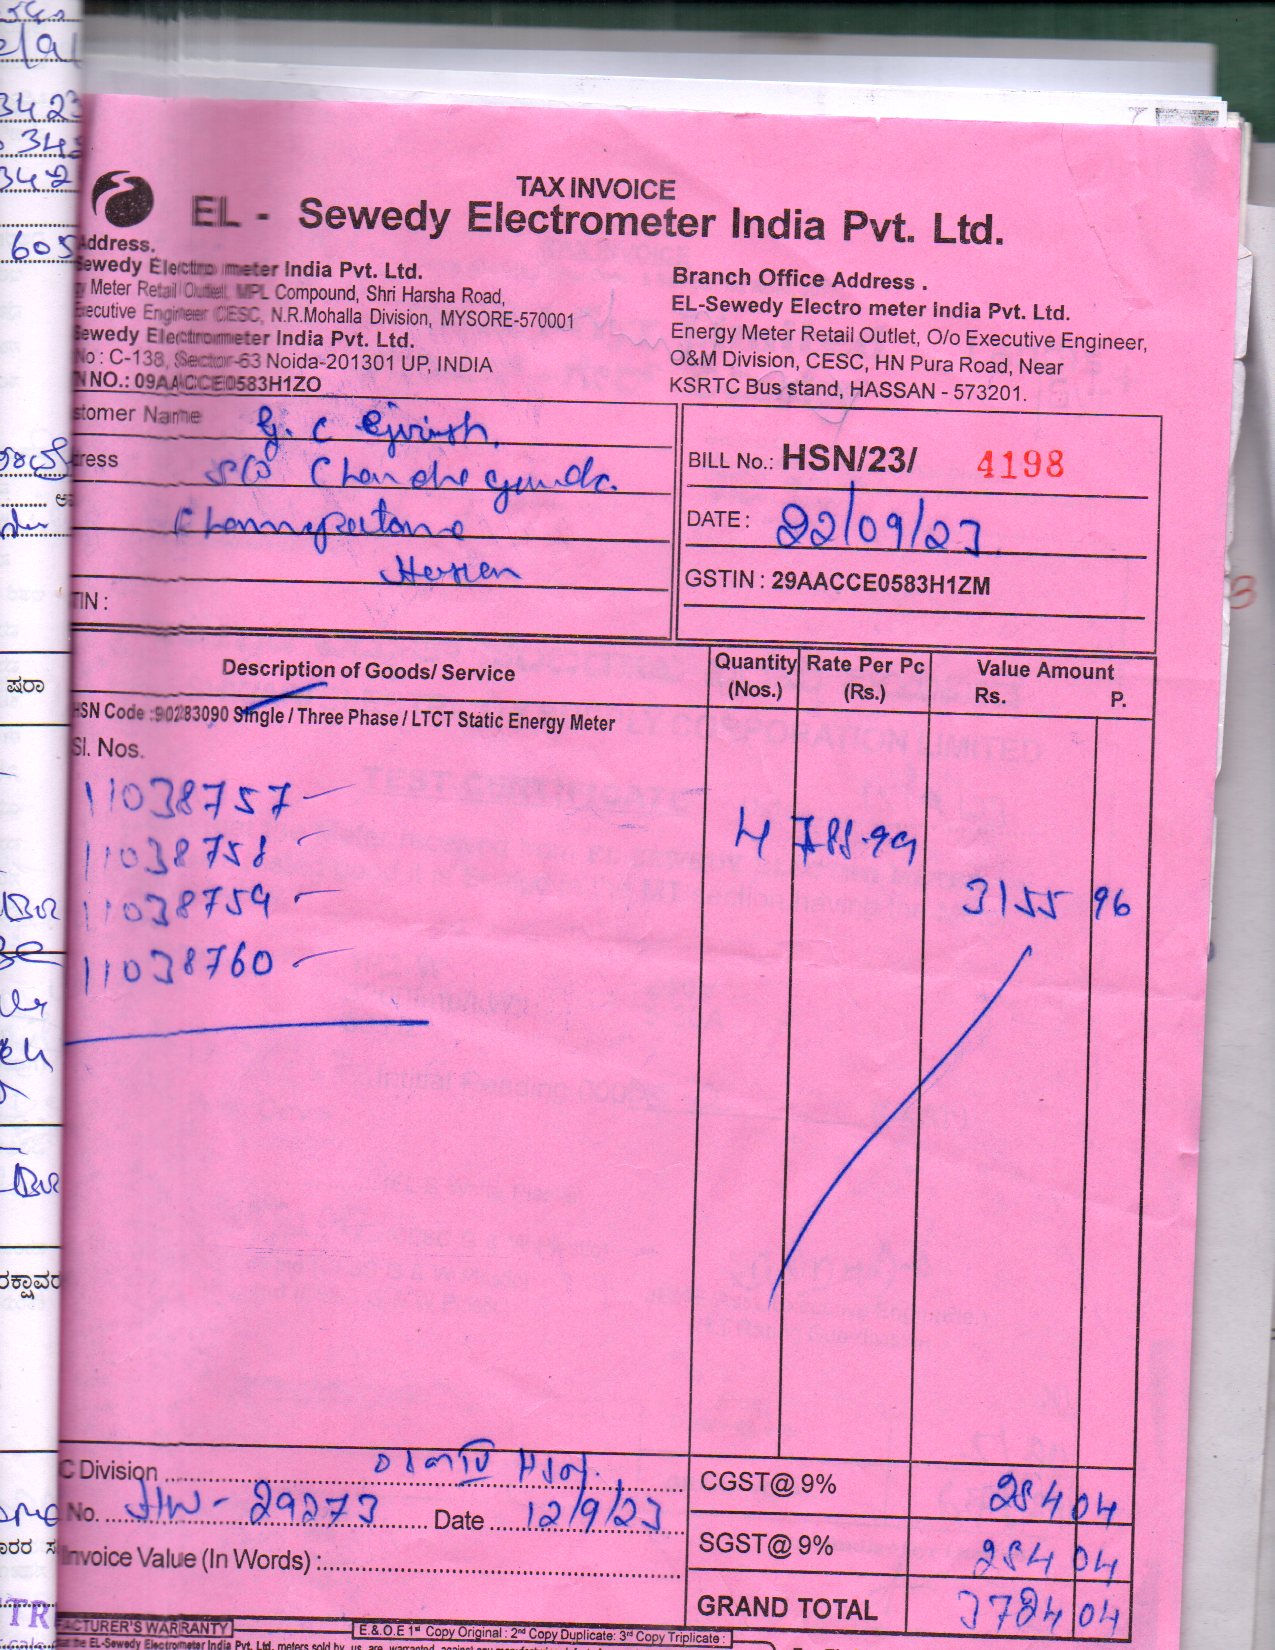 3423
342
605
TAX INVOICE
EL - Sewedy Electrometer India Pvt. Ltd.
Address.
Sewedy Electro meter India Pvt. Ltd.
Meter Retail Outlet, MPL Compound, Shri Harsha Road,
Executive Engineer CESC, N.R.Mohalla Division, MYSORE-570001
Sewedy Electrommeter India Pvt. Ltd.
No : C-138, Sector-63 Noida-201301 UP, INDIA
N NO.: 09AACCE0583H1ZO
Branch Office Address .
EL-Sewedy Electro meter india Pvt. Ltd.
Energy Meter Retail Outlet, O/o Executive Engineer,
O&M Division, CESC, HN Pura Road, Near
KSRTC Bus stand, HASSAN - 573201.
stomer Name G. C
ress S/o
Hassan
TIN :
BILL No.: HSN/23/ 4198
DATE : 22/09/23
GSTIN : 29AACCE0583H1ZM
Description of Goods/ Service Quantity (Nos.) Rate Per Pc (Rs.) Value Amount Rs. P.
HSN Code :90283090 Single / Three Phase / LTCT Static Energy Meter
Sl. Nos.
11038757
11038758
11038759
11038760
4 788.99
3155 96
C Division
No. 29273 Date 12/9/23
Invoice Value (In Words) :
CGST@ 9% 284 04
SGST@ 9% 284 04
GRAND TOTAL 3724 04
ಷರಾ
FACTURER'S WARRANTY
E.& O.E 1st Copy Original : 2nd Copy Duplicate: 3rd Copy Triplicate :
the EL-Sewedy Electrometer India Pvt. Ltd. meters sold by us are warranted against